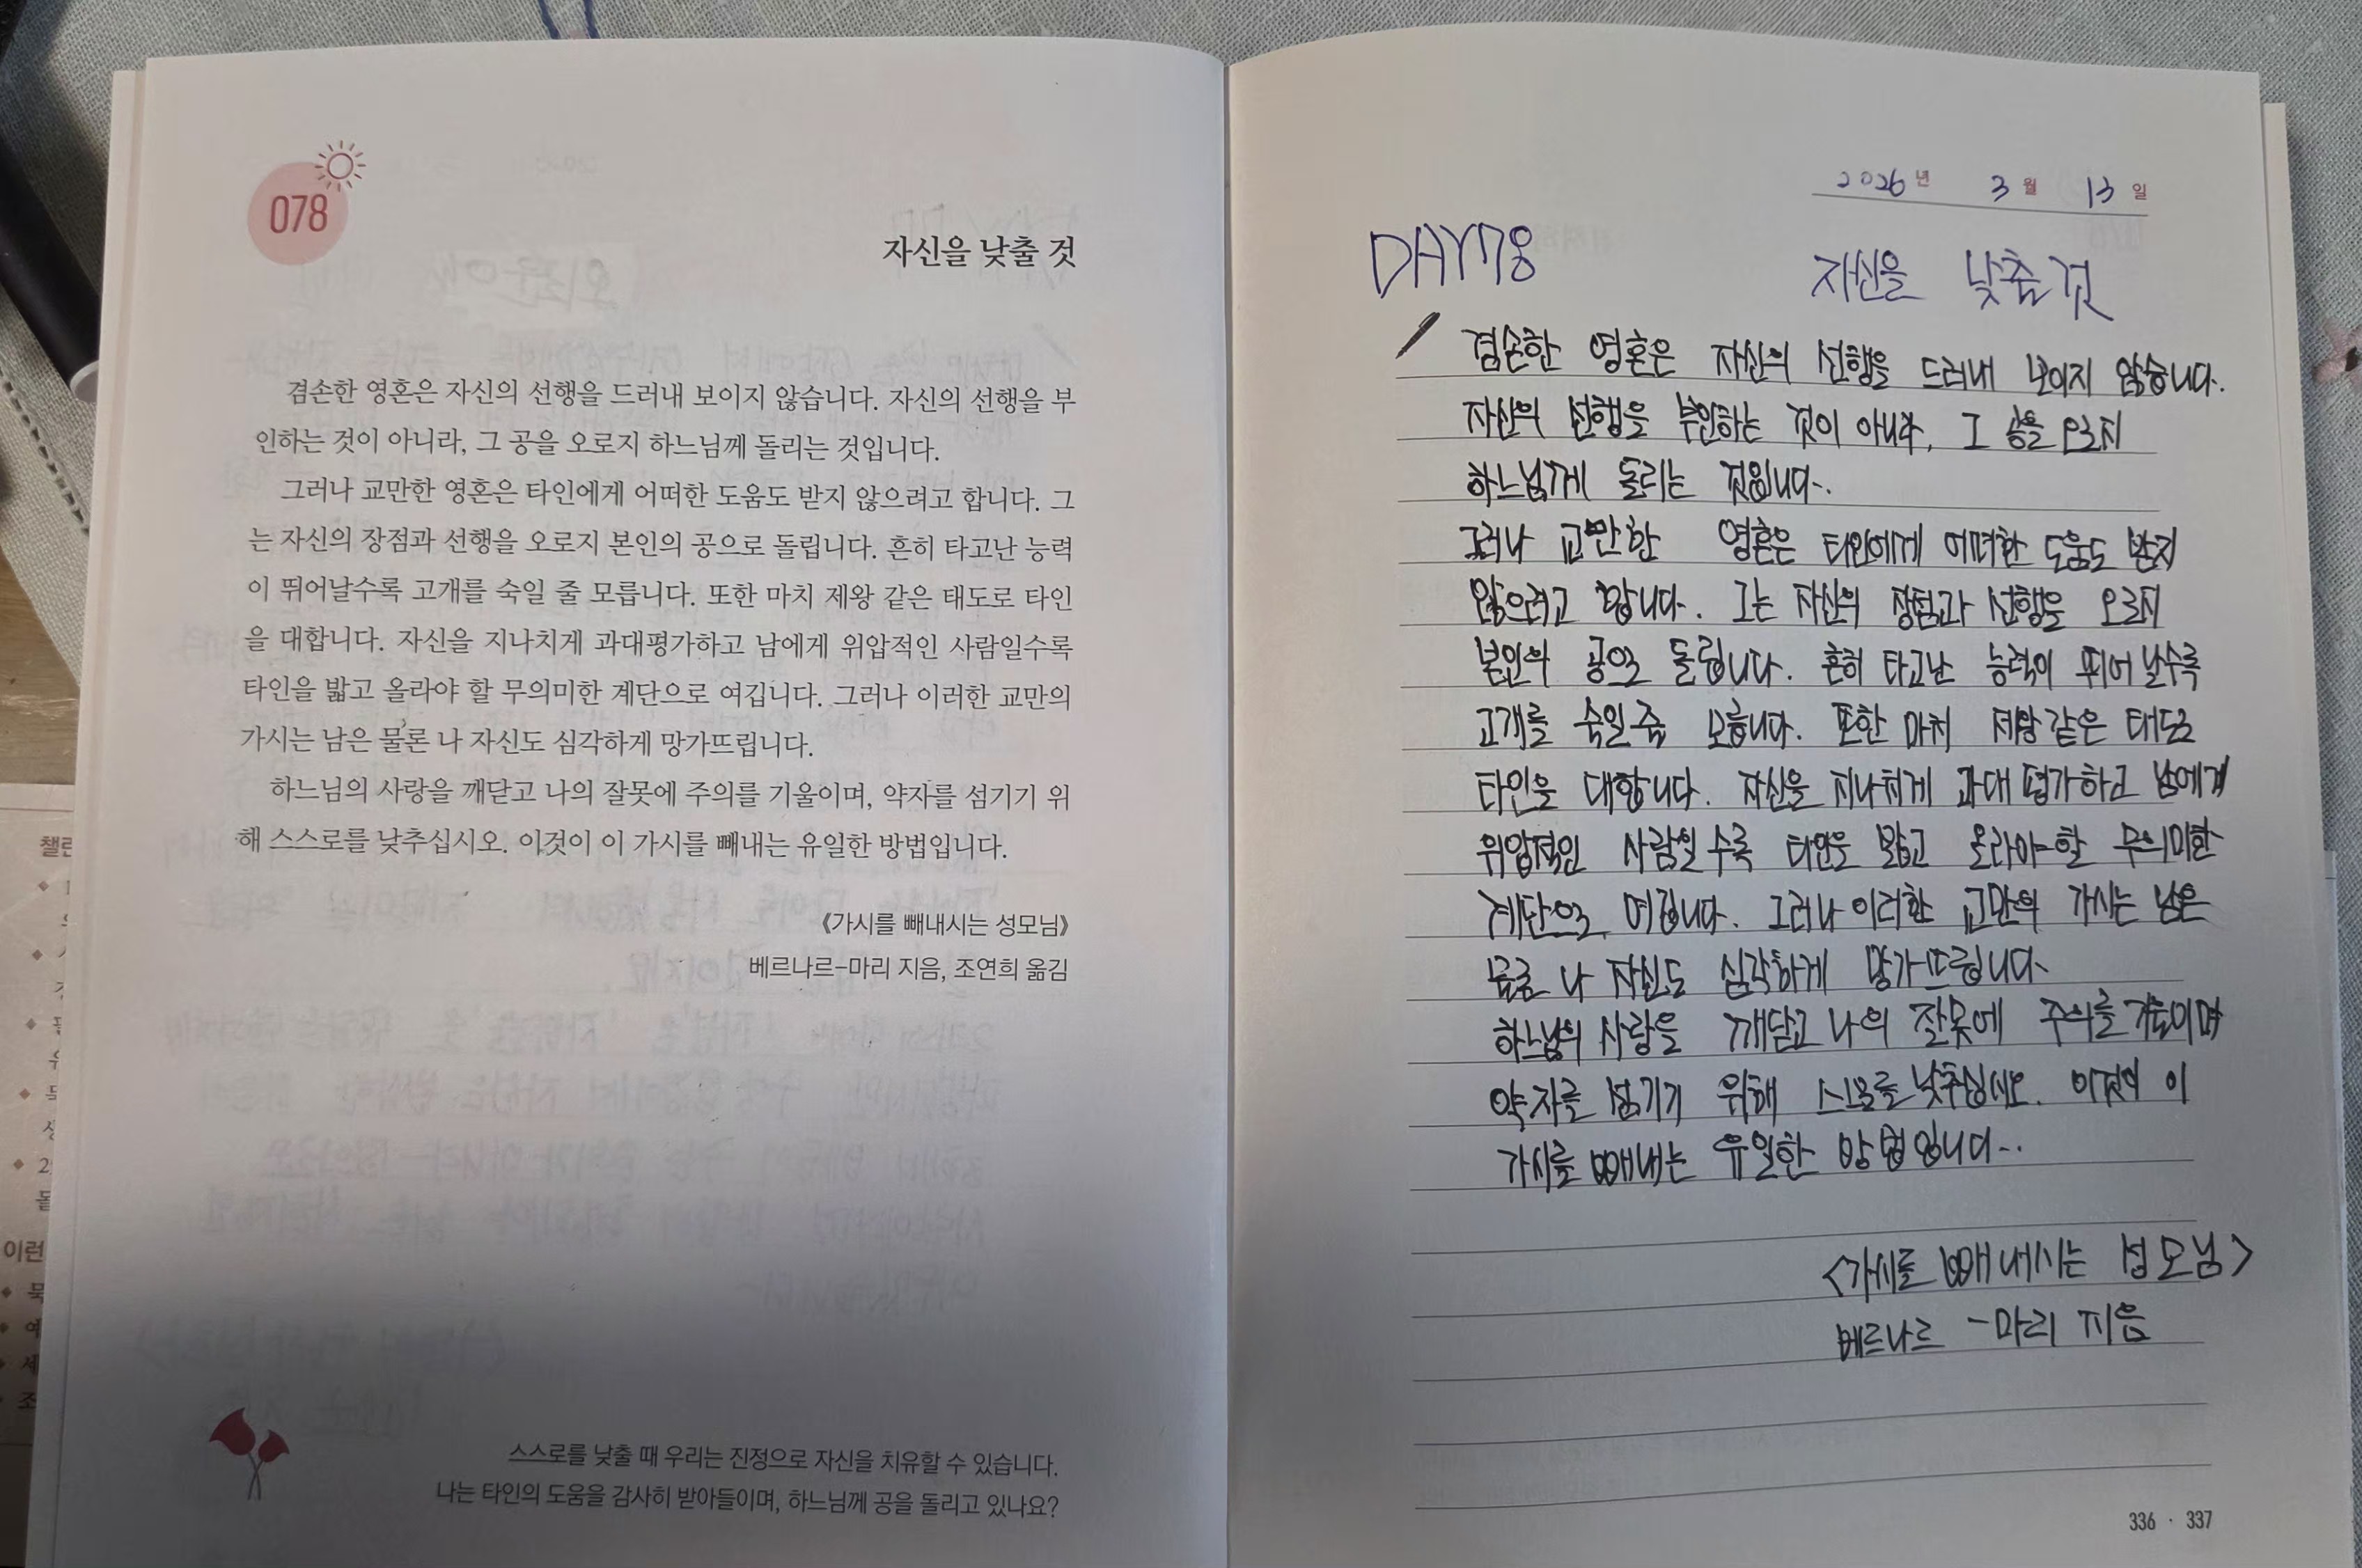 078
자신을 낮출 것
겸손한 영혼은 자신의 선행을 드러내 보이지 않습니다. 자신의 선행을 부
인하는 것이 아니라, 그 공을 오로지 하느님께 돌리는 것입니다.
그러나 교만한 영혼은 타인에게 어떠한 도움도 받지 않으려고 합니다. 그
는 자신의 장점과 선행을 오로지 본인의 공으로 돌립니다. 흔히 타고난 능력
이 뛰어날수록 고개를 숙일 줄 모릅니다. 또한 마치 제왕 같은 태도로 타인
을 대합니다. 자신을 지나치게 과대평가하고 남에게 위압적인 사람일수록
타인을 밟고 올라야 할 무의미한 계단으로 여깁니다. 그러나 이러한 교만의
가시는 남은 물론 나 자신도 심각하게 망가뜨립니다.
하느님의 사랑을 깨닫고 나의 잘못에 주의를 기울이며, 약자를 섬기기 위
해 스스로를 낮추십시오. 이것이 이 가시를 빼내는 유일한 방법입니다.
《가시를 빼내시는 성모님》
베르나르-마리 지음, 조연희 옮김
스스로를 낮출 때 우리는 진정으로 자신을 치유할 수 있습니다.
나는 타인의 도움을 감사히 받아들이며, 하느님께 공을 돌리고 있나요?
2026년 3월 13일
DAY78
자신을 낮춤 것
겸손한 영혼은 자신의 선행을 드러내 보이지 않습니다.
자신의 선행을 부인하는 것이 아니라, 그 공을 오로지
하느님께 돌리는 것입니다.
그러나 교만한 영혼은 타인에게 어떠한 도움도 받지
않으려고 합니다. 그는 자신의 장점과 선행을 오로지
본인의 공으로 돌립니다. 흔히 타고난 능력이 뛰어날수록
고개를 숙일 줄 모릅니다. 또한 마치 제왕 같은 태도로
타인을 대합니다. 자신을 지나치게 과대평가하고 남에게
위압적인 사람일수록 타인을 밟고 올라야 할 무의미한
계단으로 여깁니다. 그러나 이러한 교만의 가시는 남은
물론 나 자신도 심각하게 망가뜨립니다.
하느님의 사랑을 깨닫고 나의 잘못에 주의를 기울이며
약자를 섬기기 위해 스스로를 낮추십시오. 이것이 이
가시를 빼내는 유일한 방법입니다..
<가시를 빼내시는 성모님>
베르나르 -마리 지음
336 · 337
챌린
이런